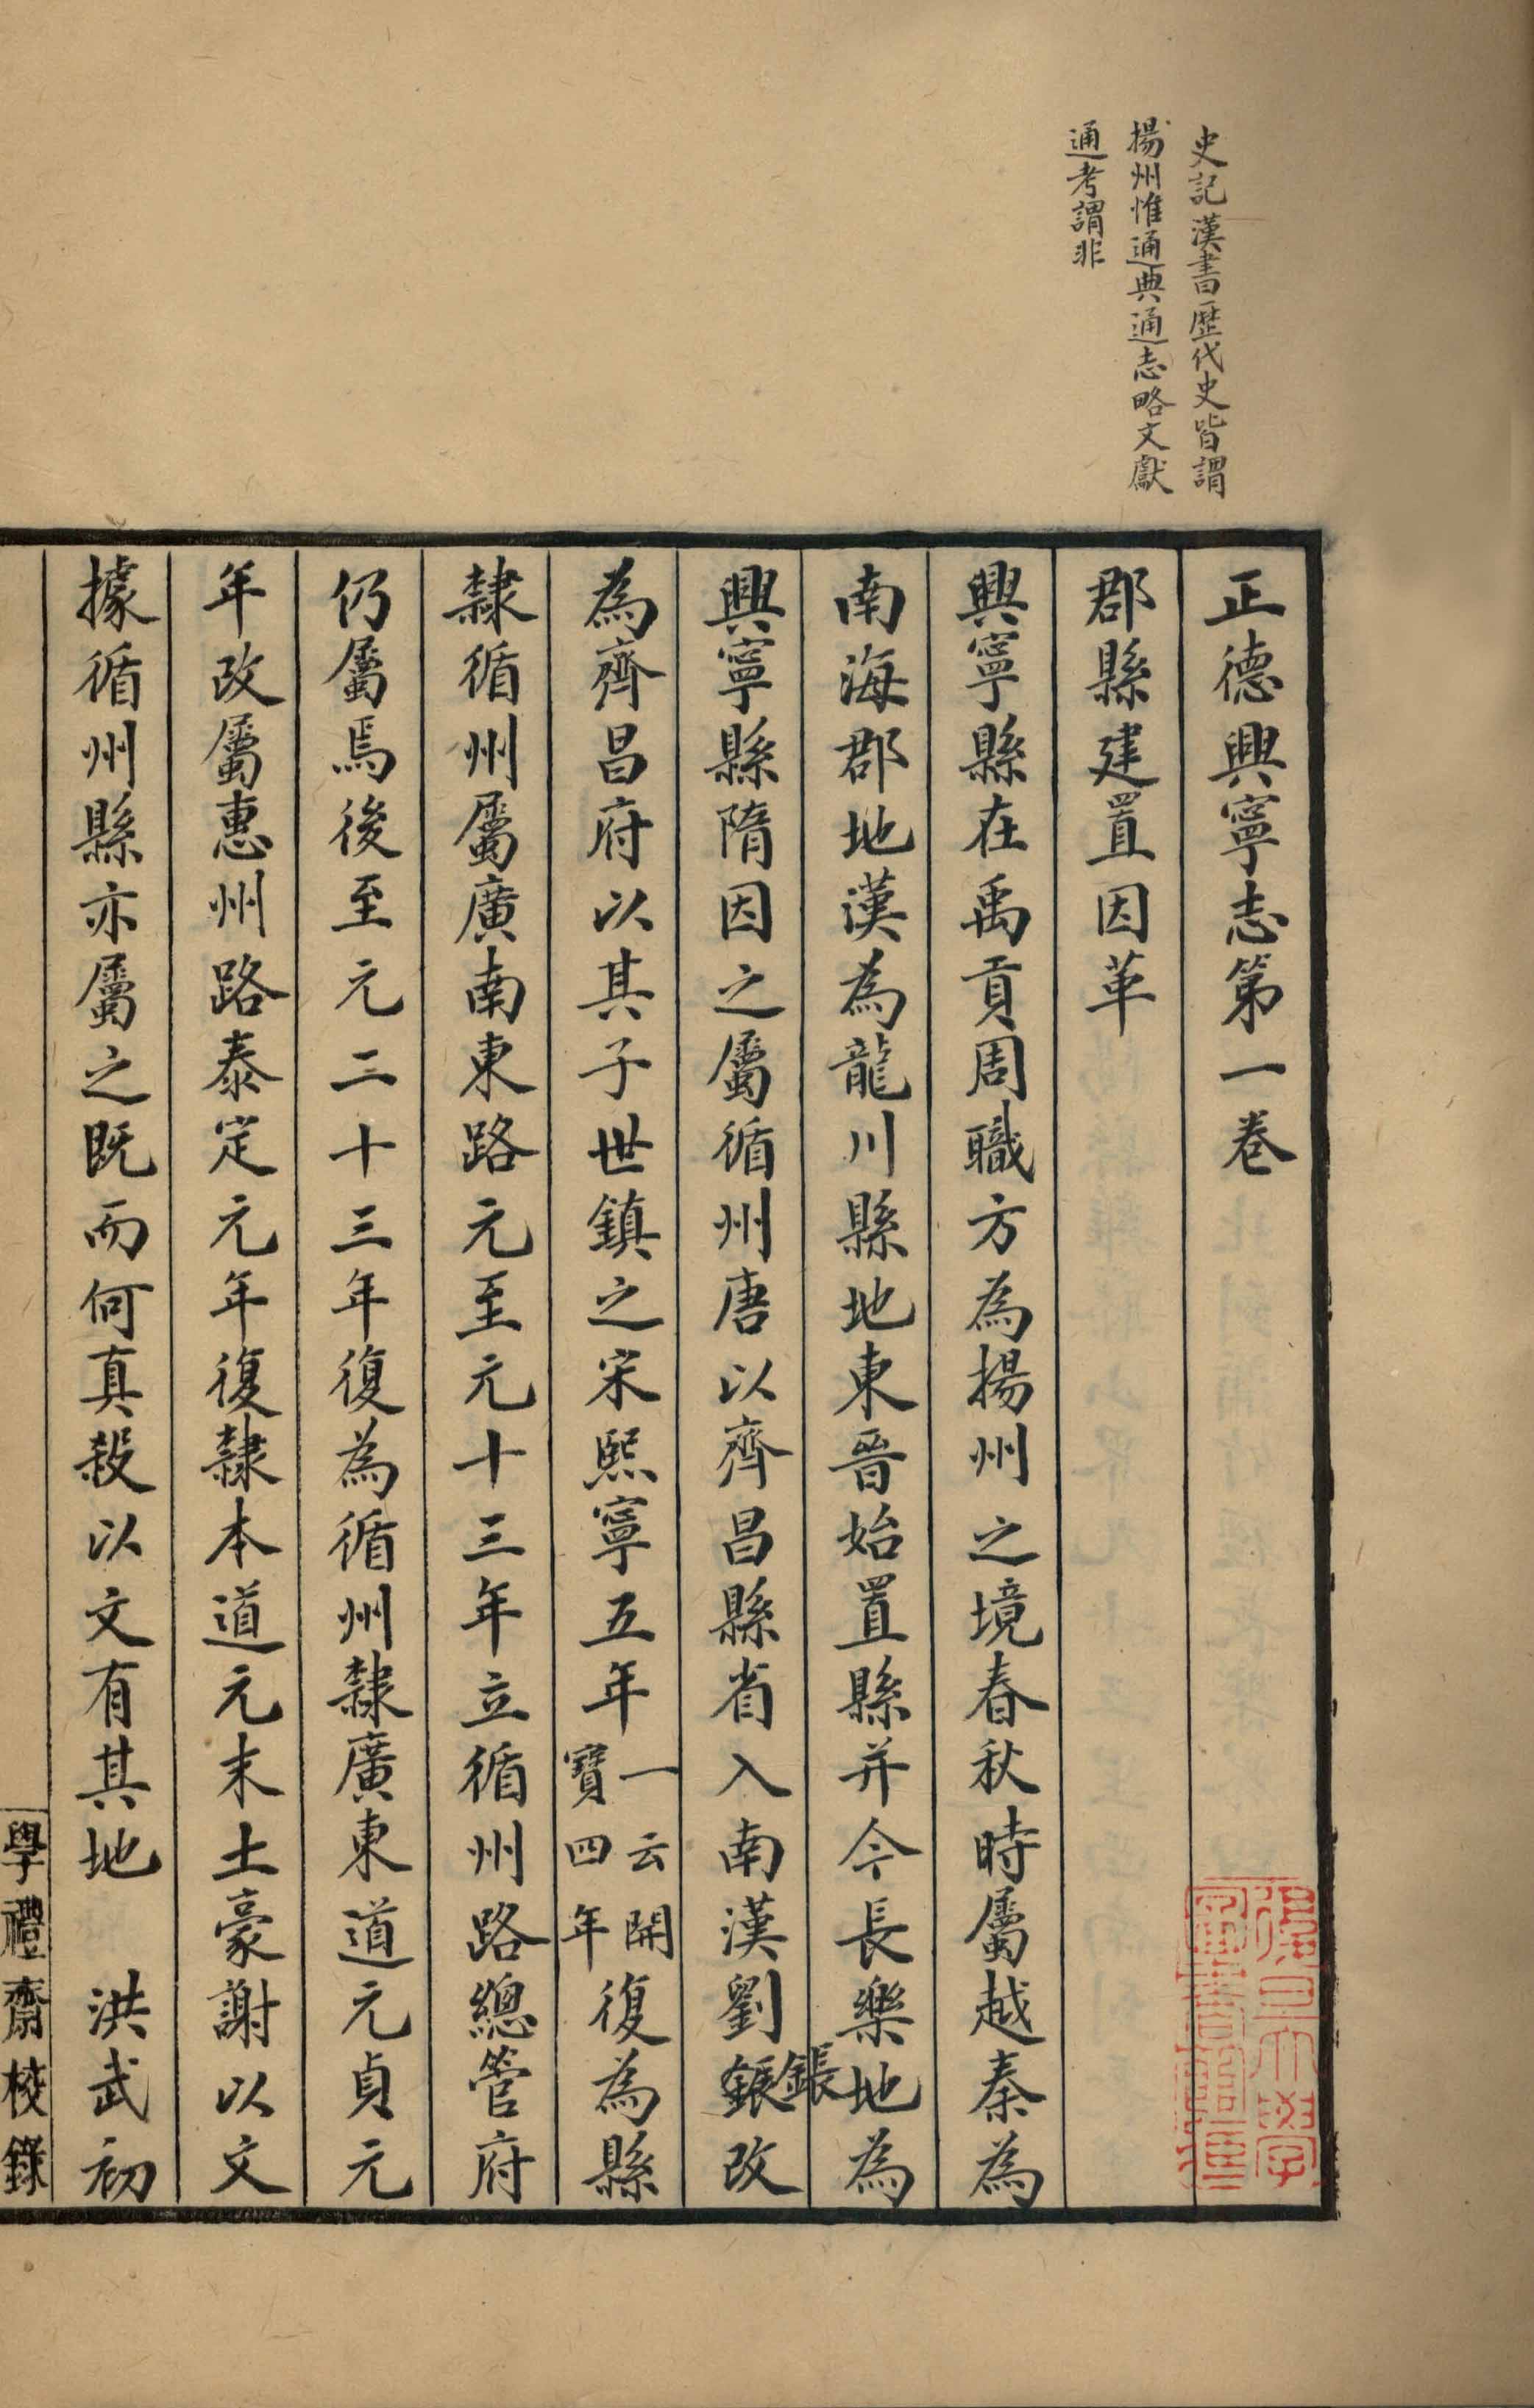 史記漢書歷代史皆謂
揚州惟通典通志略文獻
通考謂非
正德興寧志第一卷
郡縣建置因革
興寧縣在禹貢周職方為揚州之境春秋時屬越秦為
南海郡地漢為龍川縣地東晉始置縣并今長樂地為
興寧縣隋因之屬循州唐以齊昌縣省入南漢劉鋹改
鋹
為齊昌府以其子世鎮之宋熙寧五年一云開寶四年復為縣
隸循州屬廣南東路元至元十三年立循州路總管府
仍屬焉後至元二十三年復為循州隸廣東道元貞元
年改屬惠州路泰定元年復隸本道元末土豪謝以文
據循州縣亦屬之既而何真殺以文有其地　洪武初
學禮齋校錄
復旦大學圖書館藏